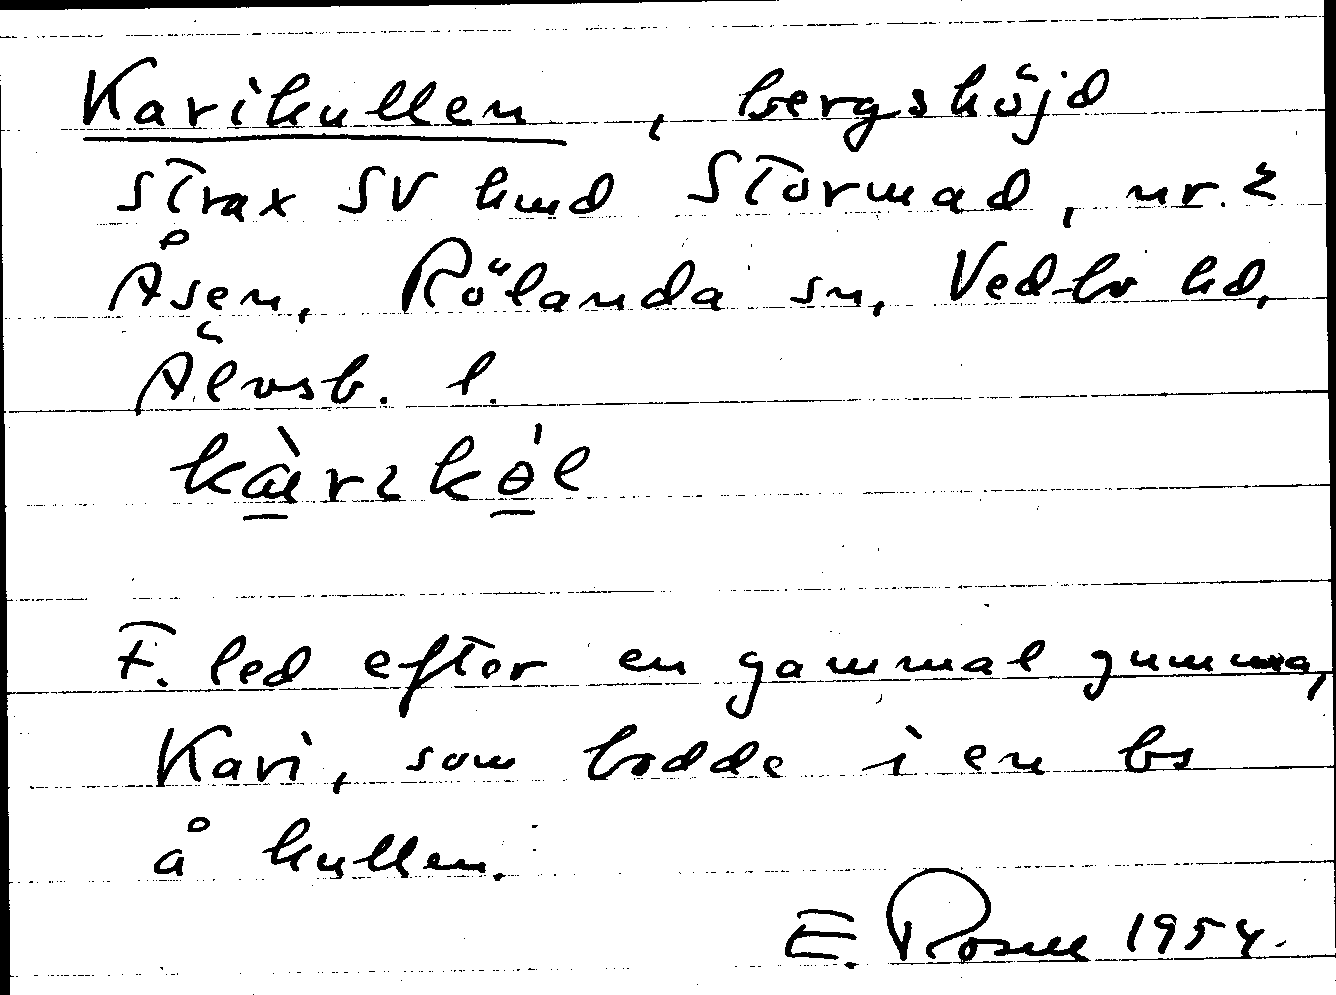 Karikullen, bergshöjd
strax SV lmd Stormad, nr. 2
Åsen, Rölanda sn, Vedbo hd,
Älvsb. l.
F. led efter en gammal gumma,
Kari, som bodde i en bs
å kullen.
E. Rosell 1954.